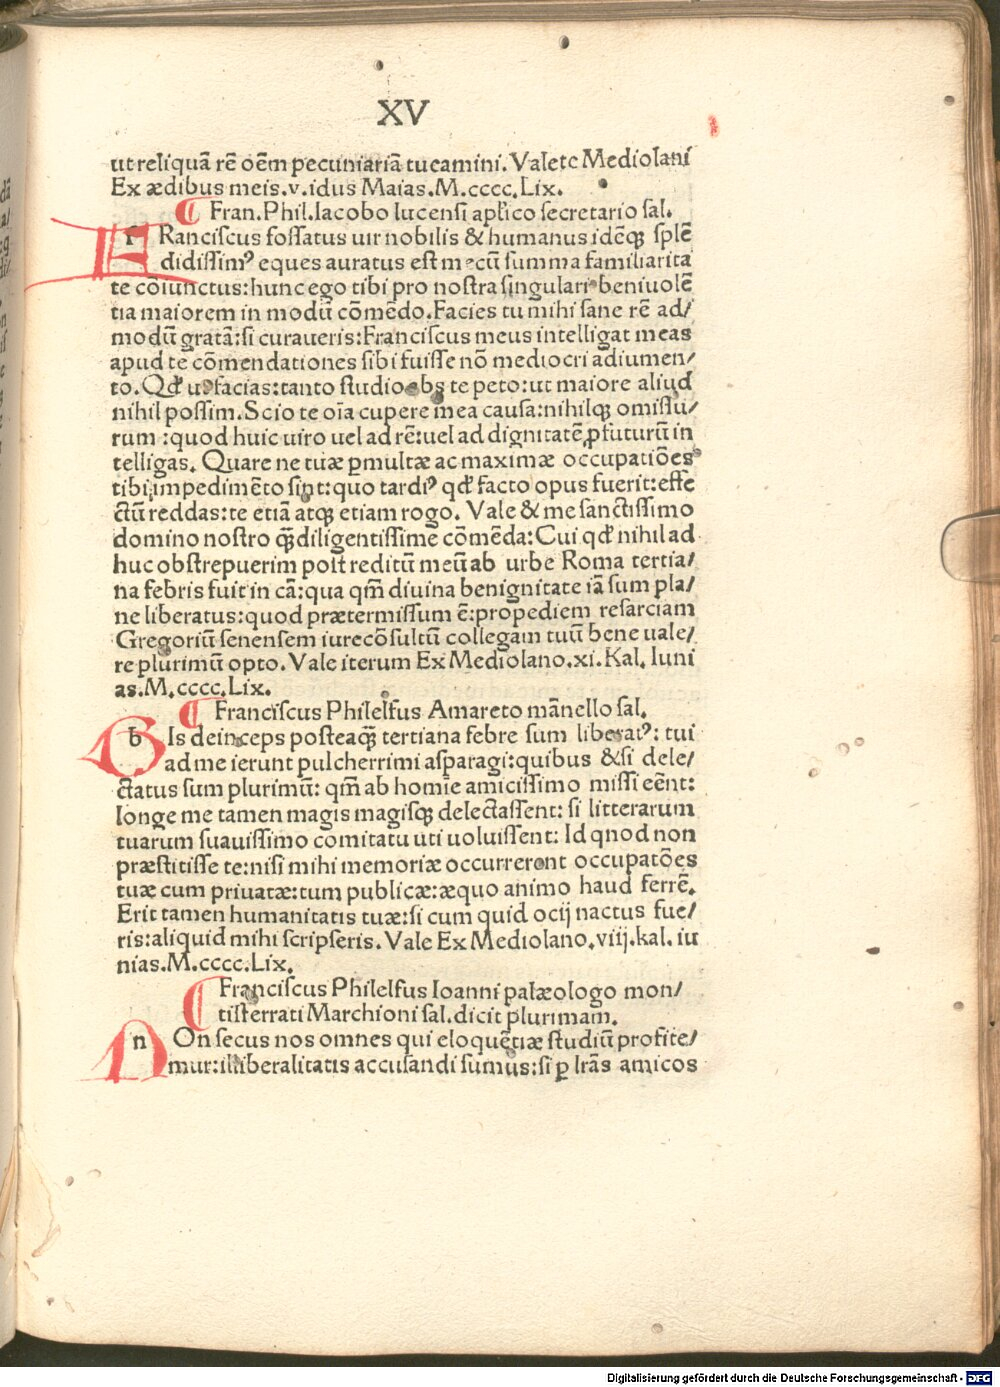 XV
ut reliquā rē oēm pecuniariā tu camini. Valete Mediolani
Ex ædibus meis.v.idus Maias.M.cccc.Lix.
¶ Fran.Phil.Iacobo lucensi apl'ico secretario sal.
f Ranciscus fossatus uir nobilis & humanus idēq; splē
didissim⁹ eques auratus est mecū summa familiarita
te cōiunctus:hunc ego tibi pro nostra singulari beniuolē
tia maiorem in modū cōmēdo.Facies tu mihi sane rē ad/
modū gratā:si curaueris:Franciscus meus intelligat meas
apud te cōmendationes sibi fuisse nō mediocri adiumen/
to. Qđ ut facias:tanto studio abs te peto:ut maiore aliud
nihil possim.Scio te oīa cupere mea causa:nihilq; omissu/
rum :quod huic uiro uel ad rē:uel ad dignitatē ꝓfuturū in
telligas. Quare ne tuæ ꝑmultæ ac maximæ occupatiōes
tibi impedimēto sint:quo tardi⁹ qđ facto opus fuerit:effe
ctū reddas:te etiā atq; etiam rogo. Vale & me sanctissimo
domino nostro q̄diligentissime cōmēda:Cui qđ nihil ad
huc obstrepuerim post reditū meū ab urbe Roma tertia/
na febris fuit in cā:qua qm̄ diuina benignitate iā sum pla/
ne liberatus:quod prætermissum ē:propediem resarciam
Gregoriū senensem iurecōsultū collegam tuū bene uale/
re plurimū opto. Vale iterum Ex Mediolano.xi.Kal. Iuni
as.M.cccc.Lix.
¶ Franciscus Philelfus Amareto mānello sal.
b Is deinceps posteaq̄ tertiana febre sum liberat⁹: tui
ad me ierunt pulcherrimi asparagi:quibus &si dele/
ctatus sum plurimū: qm̄ ab homīe amicissimo missi eēnt:
longe me tamen magis magisq; delectassent: si litterarum
tuarum suauissimo comitatu uti uoluissent: Id qnod non
præstitisse te:nisi mihi memoriæ occurreront occupatōes
tuæ cum priuatæ:tum publicæ:æquo animo haud ferrē.
Erit tamen humanitatis tuæ:si cum quid ocij nactus fue/
ris:aliquid mihi scripseris. Vale Ex Mediolano.viij.kal. iu
nias.M.cccc.Lix.
¶ Franciscus Philelfus Ioanni palæologo mon/
tisferrati Marchioni sal.dicit plurimam.
n On secus nos omnes qui eloquētiæ studiū profite/
mur:illiberalitatis accusandi sumus:si ꝑ lrās amicos
Digitalisierung gefördert durch die Deutsche Forschungsgemeinschaft - DFG